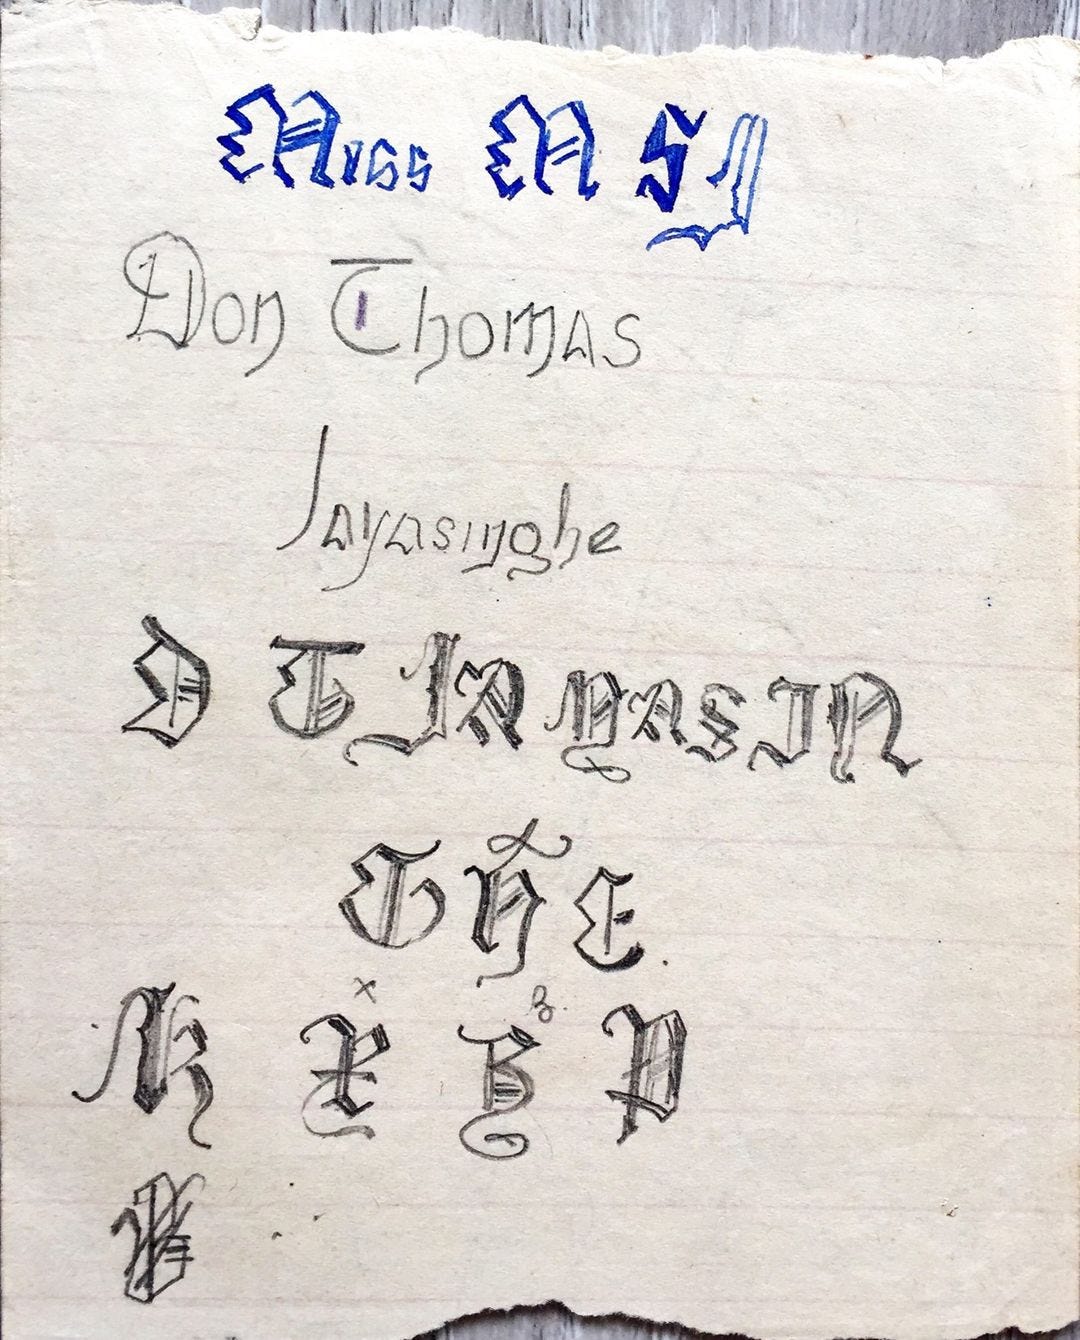 Miss M S J
Don Thomas
Jayasinghe
D T JAYASIN
GHE.
x z.
K X Z P